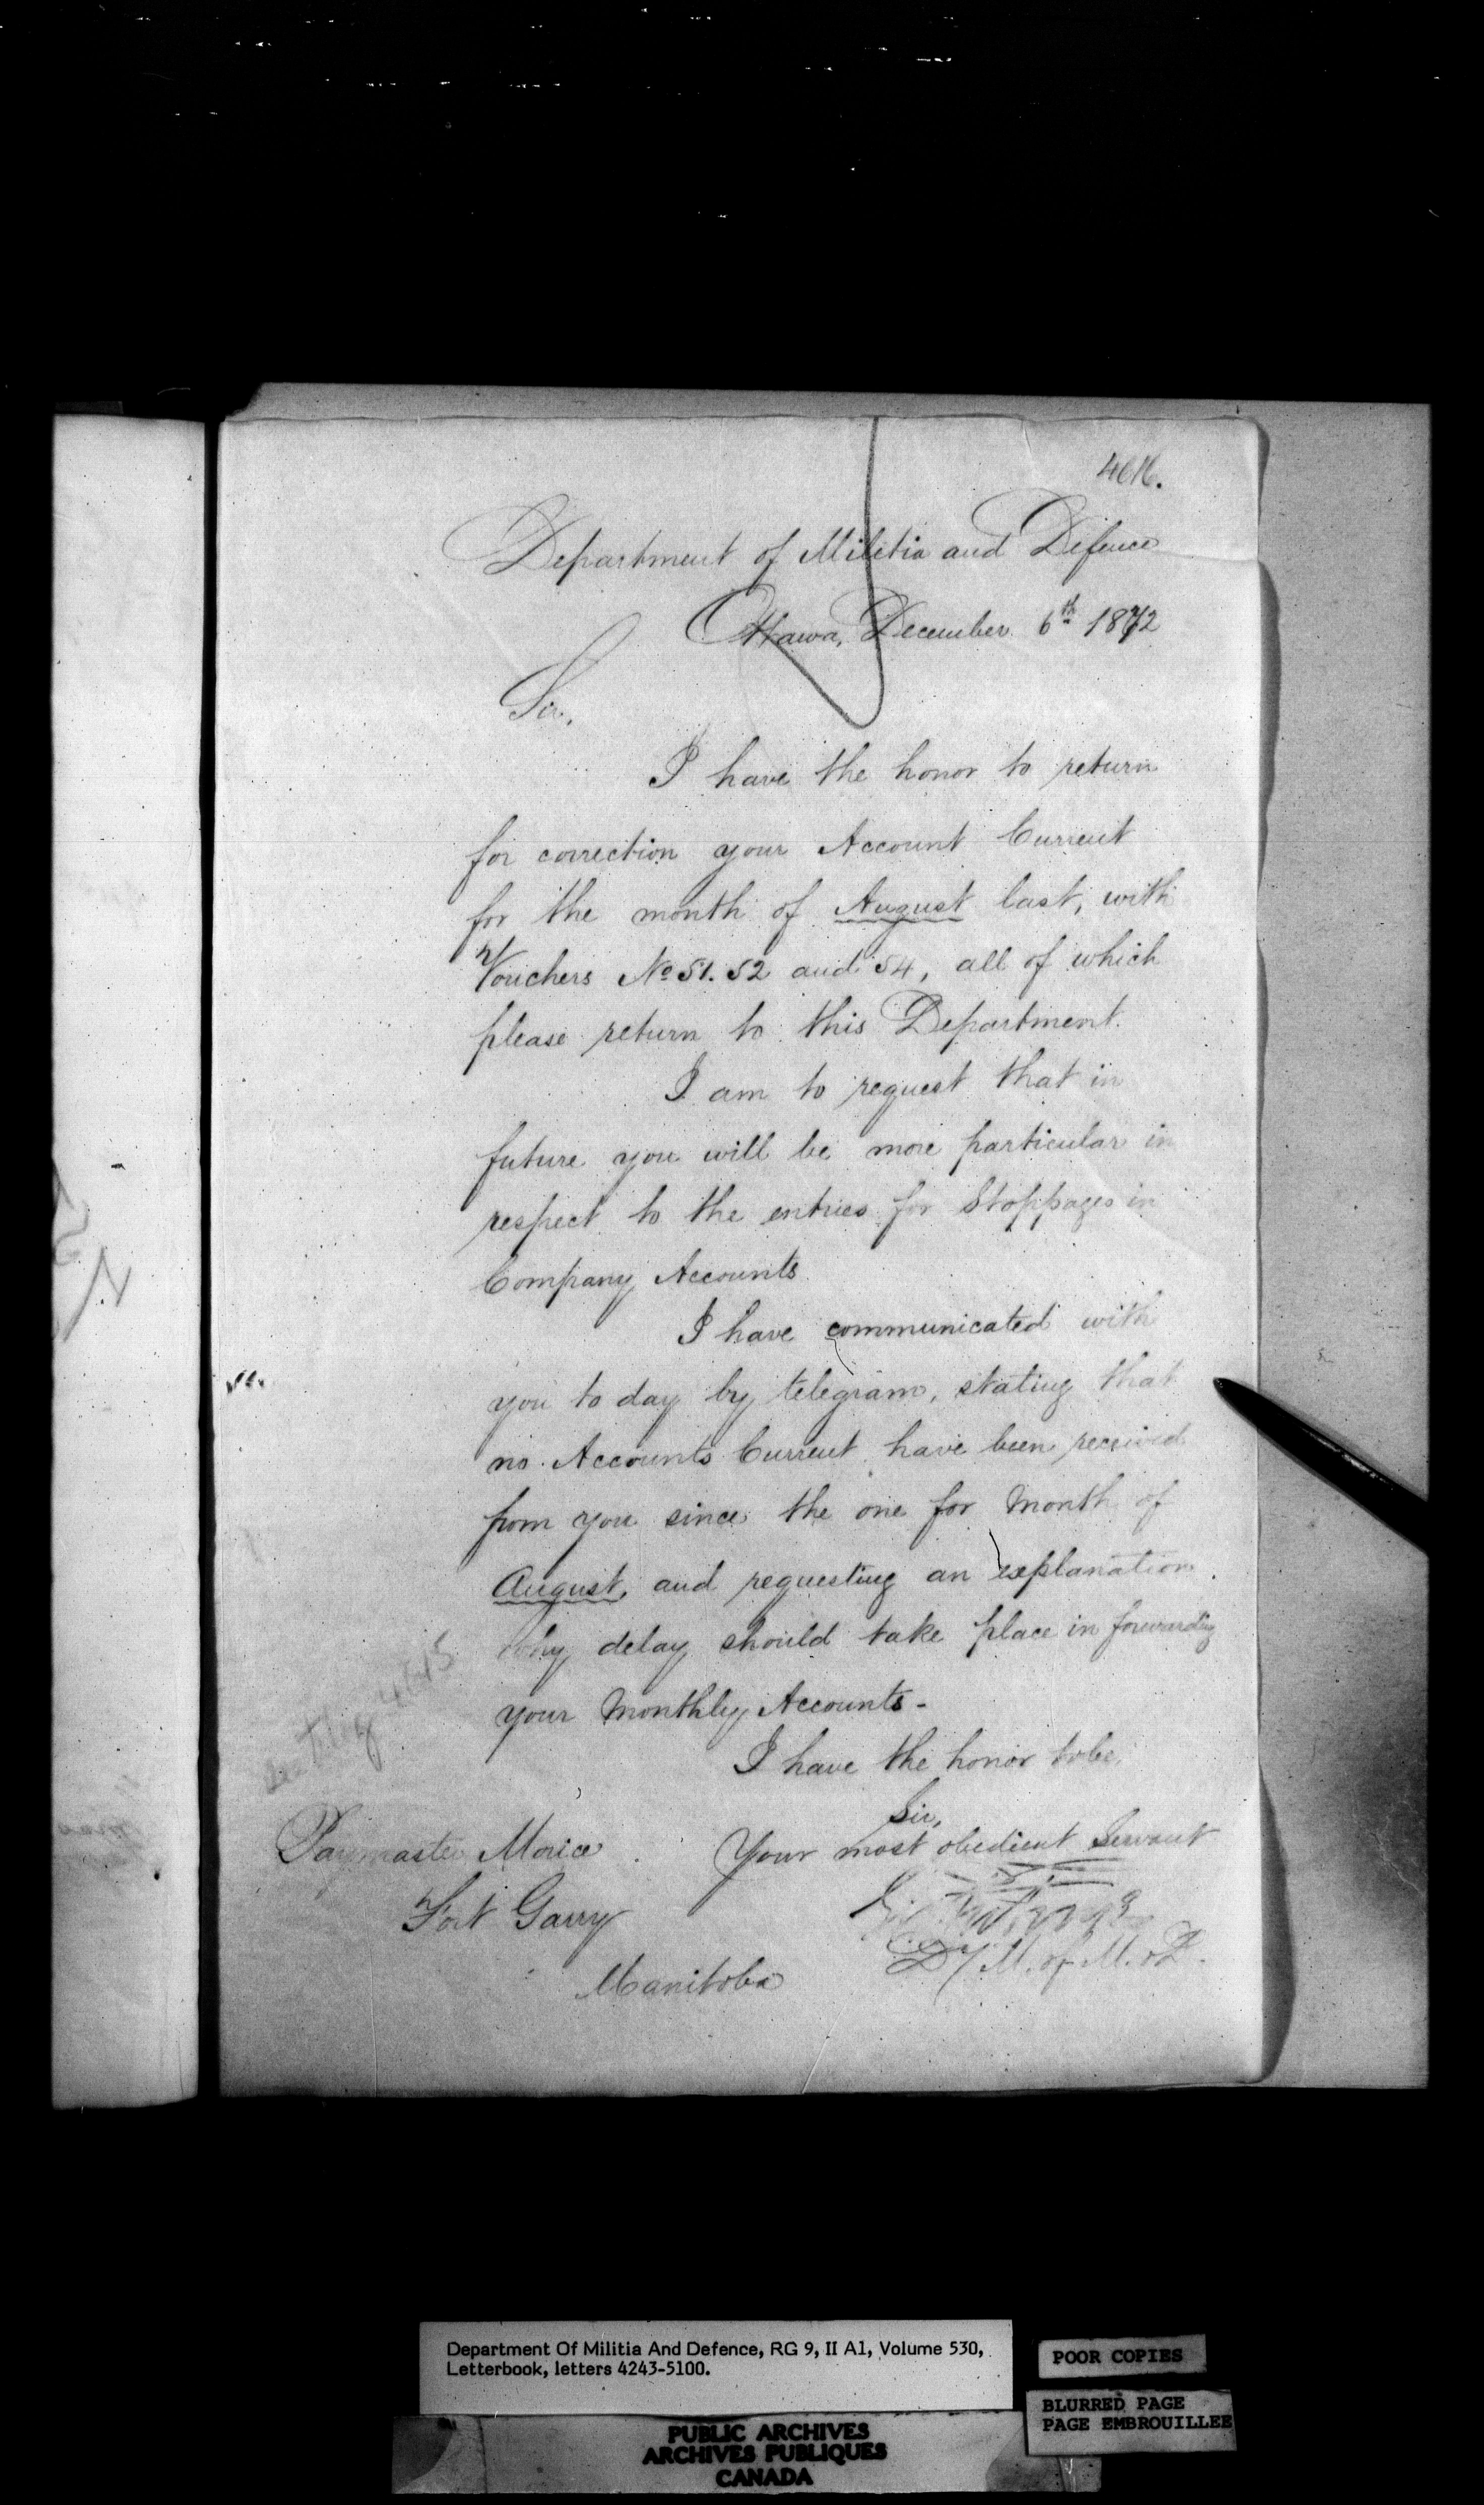 4616.
Department of Militia and Defence
Ottawa, December 6th 1872
Sir,
I have the honor to return
for correction your Account Current
for the month of August last, with
Vouchers No 51. 52 and 54, all of which
please return to this Department.
I am to request that in
future you will be more particular in
respect to the entries for Stoppages in
Company Accounts.
I have communicated with
you to day by telegram, stating that
no Accounts Current have been received
from you since the one for Month of
August, and requesting an explanation
why delay should take place in forwarding
your Monthly Accounts -
I have the honor to be,
Sir,
Your most obedient Servant
Paymaster Morice
Fort Garry
Manitoba
Dy M. of M. & D.
Department Of Militia And Defence, RG 9, II A1, Volume 530,
Letterbook, letters 4243-5100.
POOR COPIES
BLURRED PAGE
PAGE EMBROUILLEE
PUBLIC ARCHIVES
ARCHIVES PUBLIQUES
CANADA